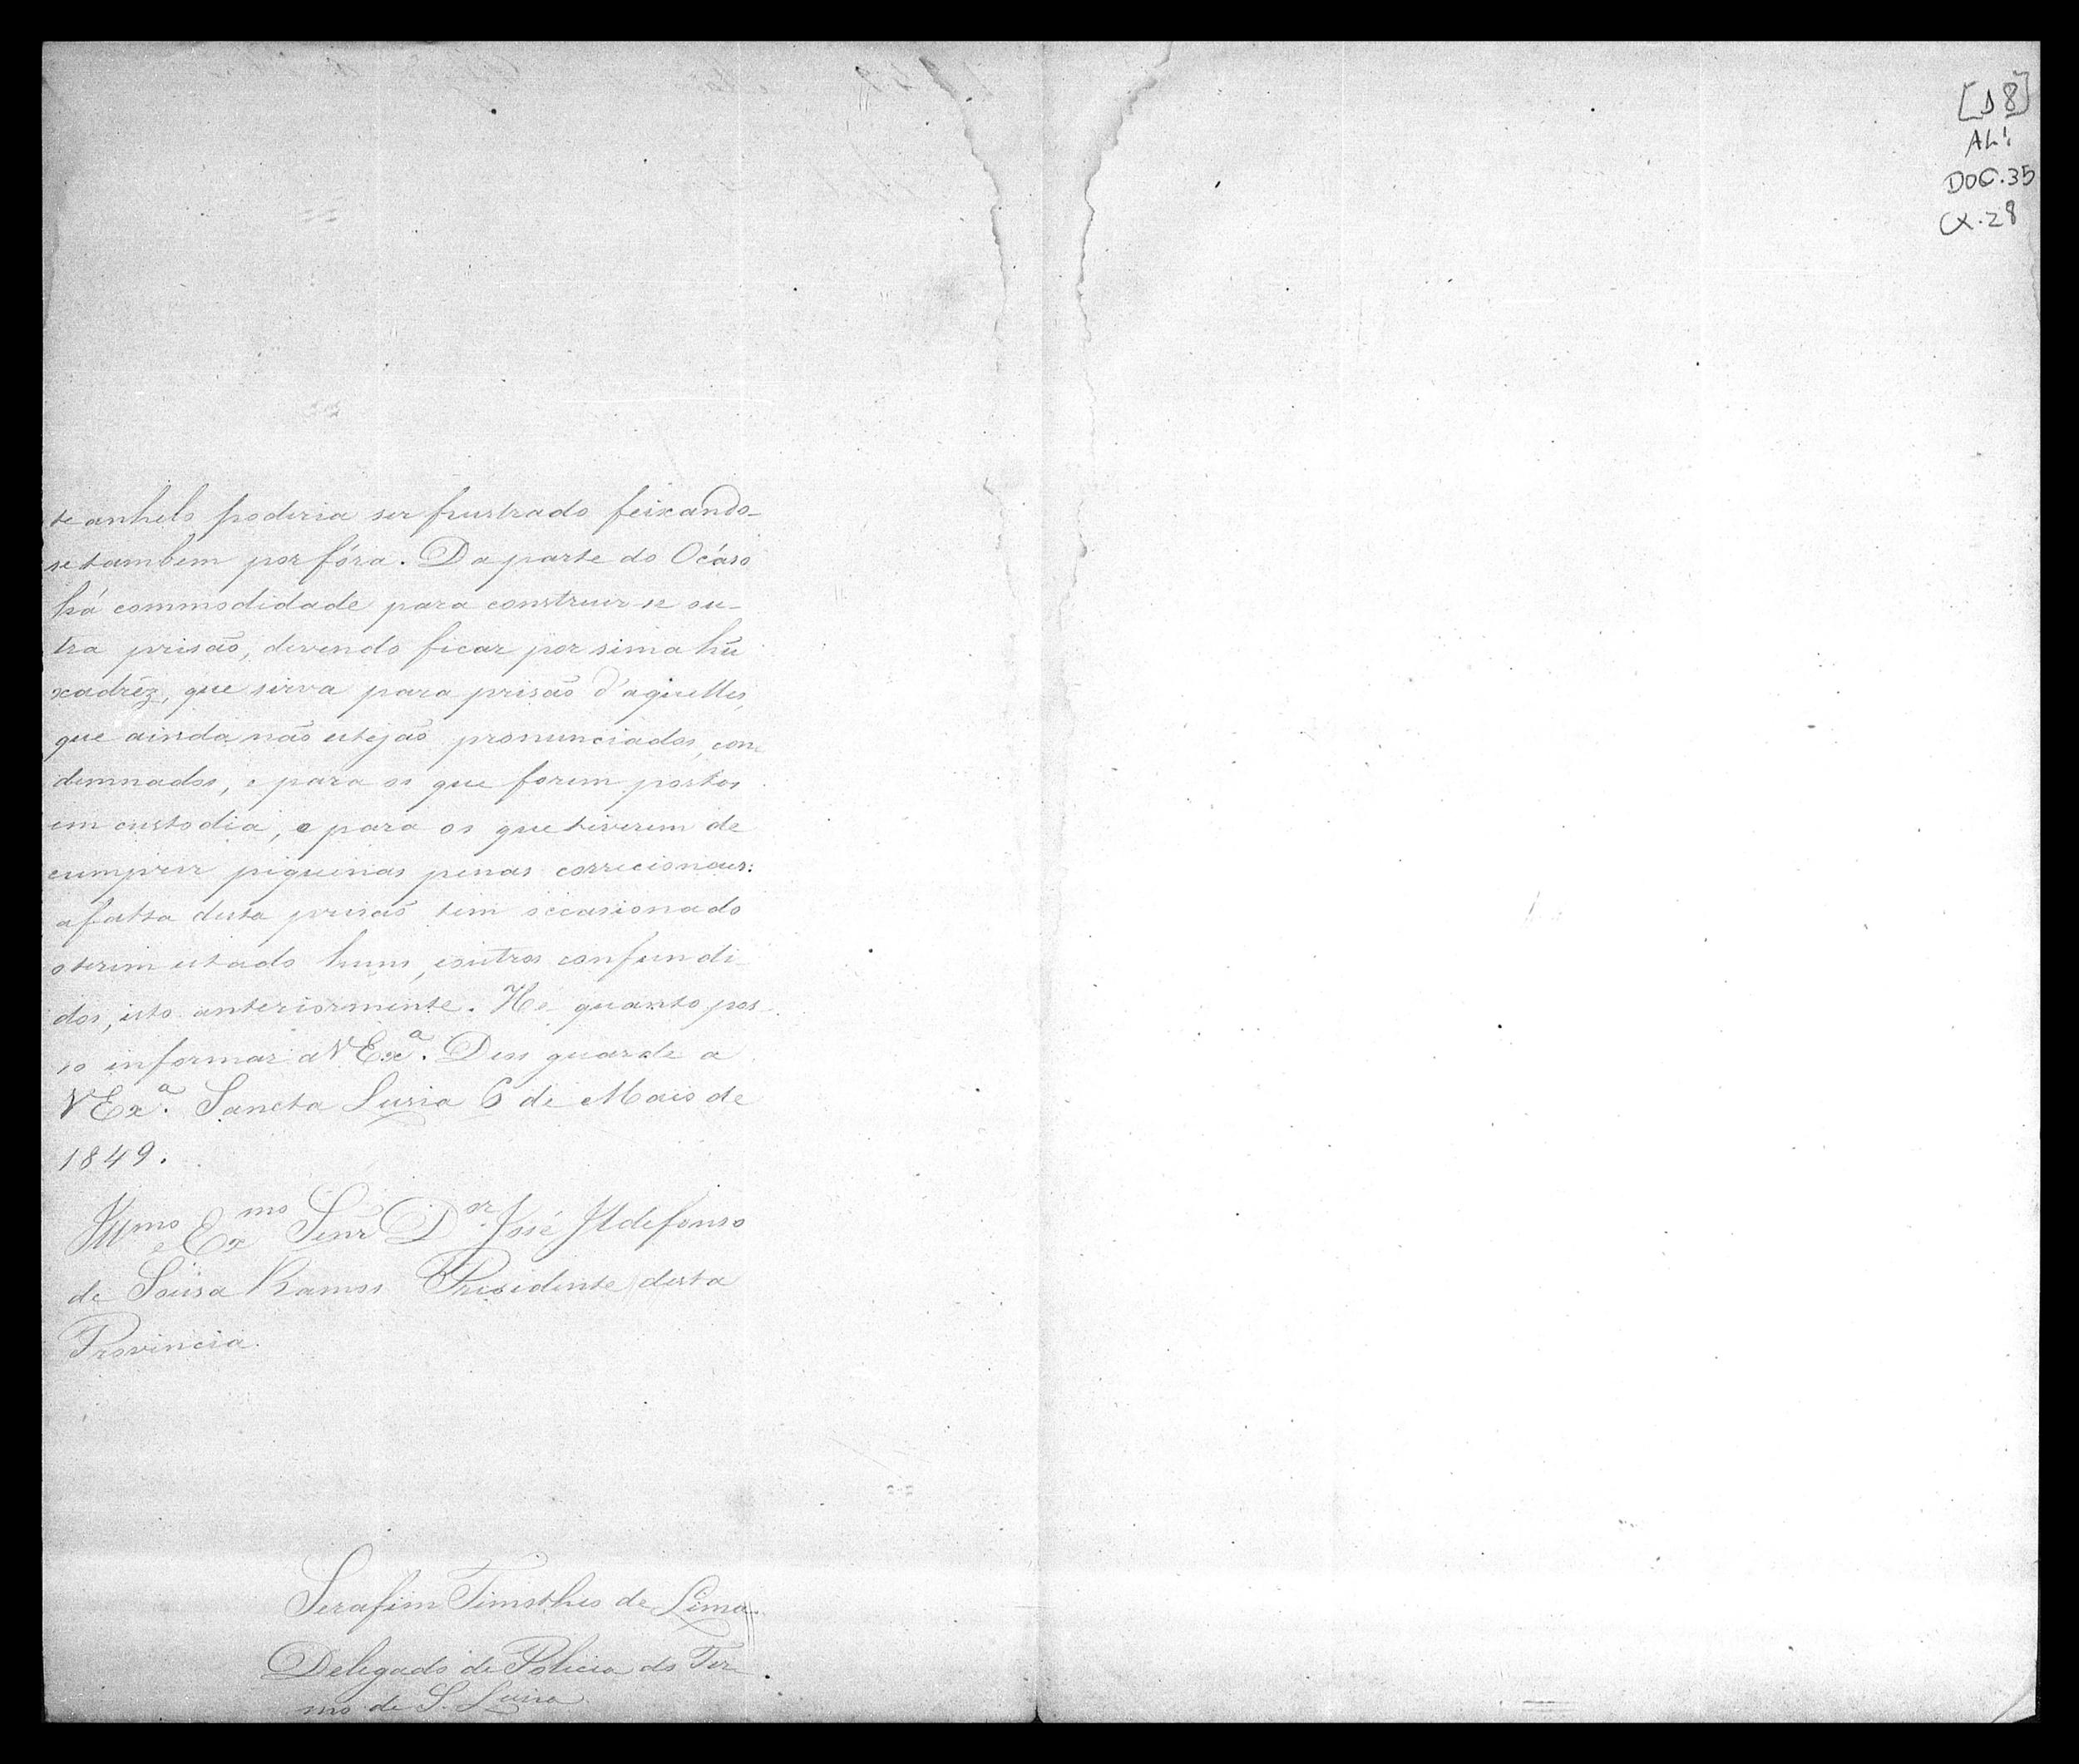 te anhelo poderia ser frustrado feixando-
se tambem por fóra. Da parte do Ocáso
há commodidade para construir-se ou-
tra prisão, devendo ficar por sima hũ
xadrêz, que sirva para prisão d'aquelles,
que ainda não estejão pronunciados, con-
demnados, e para os que forem postos
em custodia, e para os que tiverem de
cumprir piquenas penas correcionaes:
a falta desta prisão tem occasionado
o terem estado huns, e outros confundi-
dos, isto anteriormente. He quanto pos-
so informar a VExª. Deos guarde a
VExª. Sancta Lusia 6 de Maio de
1849.
Illmo e Exmo Senr Dor José Ildefonso
de Sousa Ramos Presidente desta
Provincia.
Serafim Timotheo de Lima
Delegado de Policia do Ter-
mo de S. Lusia
[D 8]
DOC. 35
CX. 28